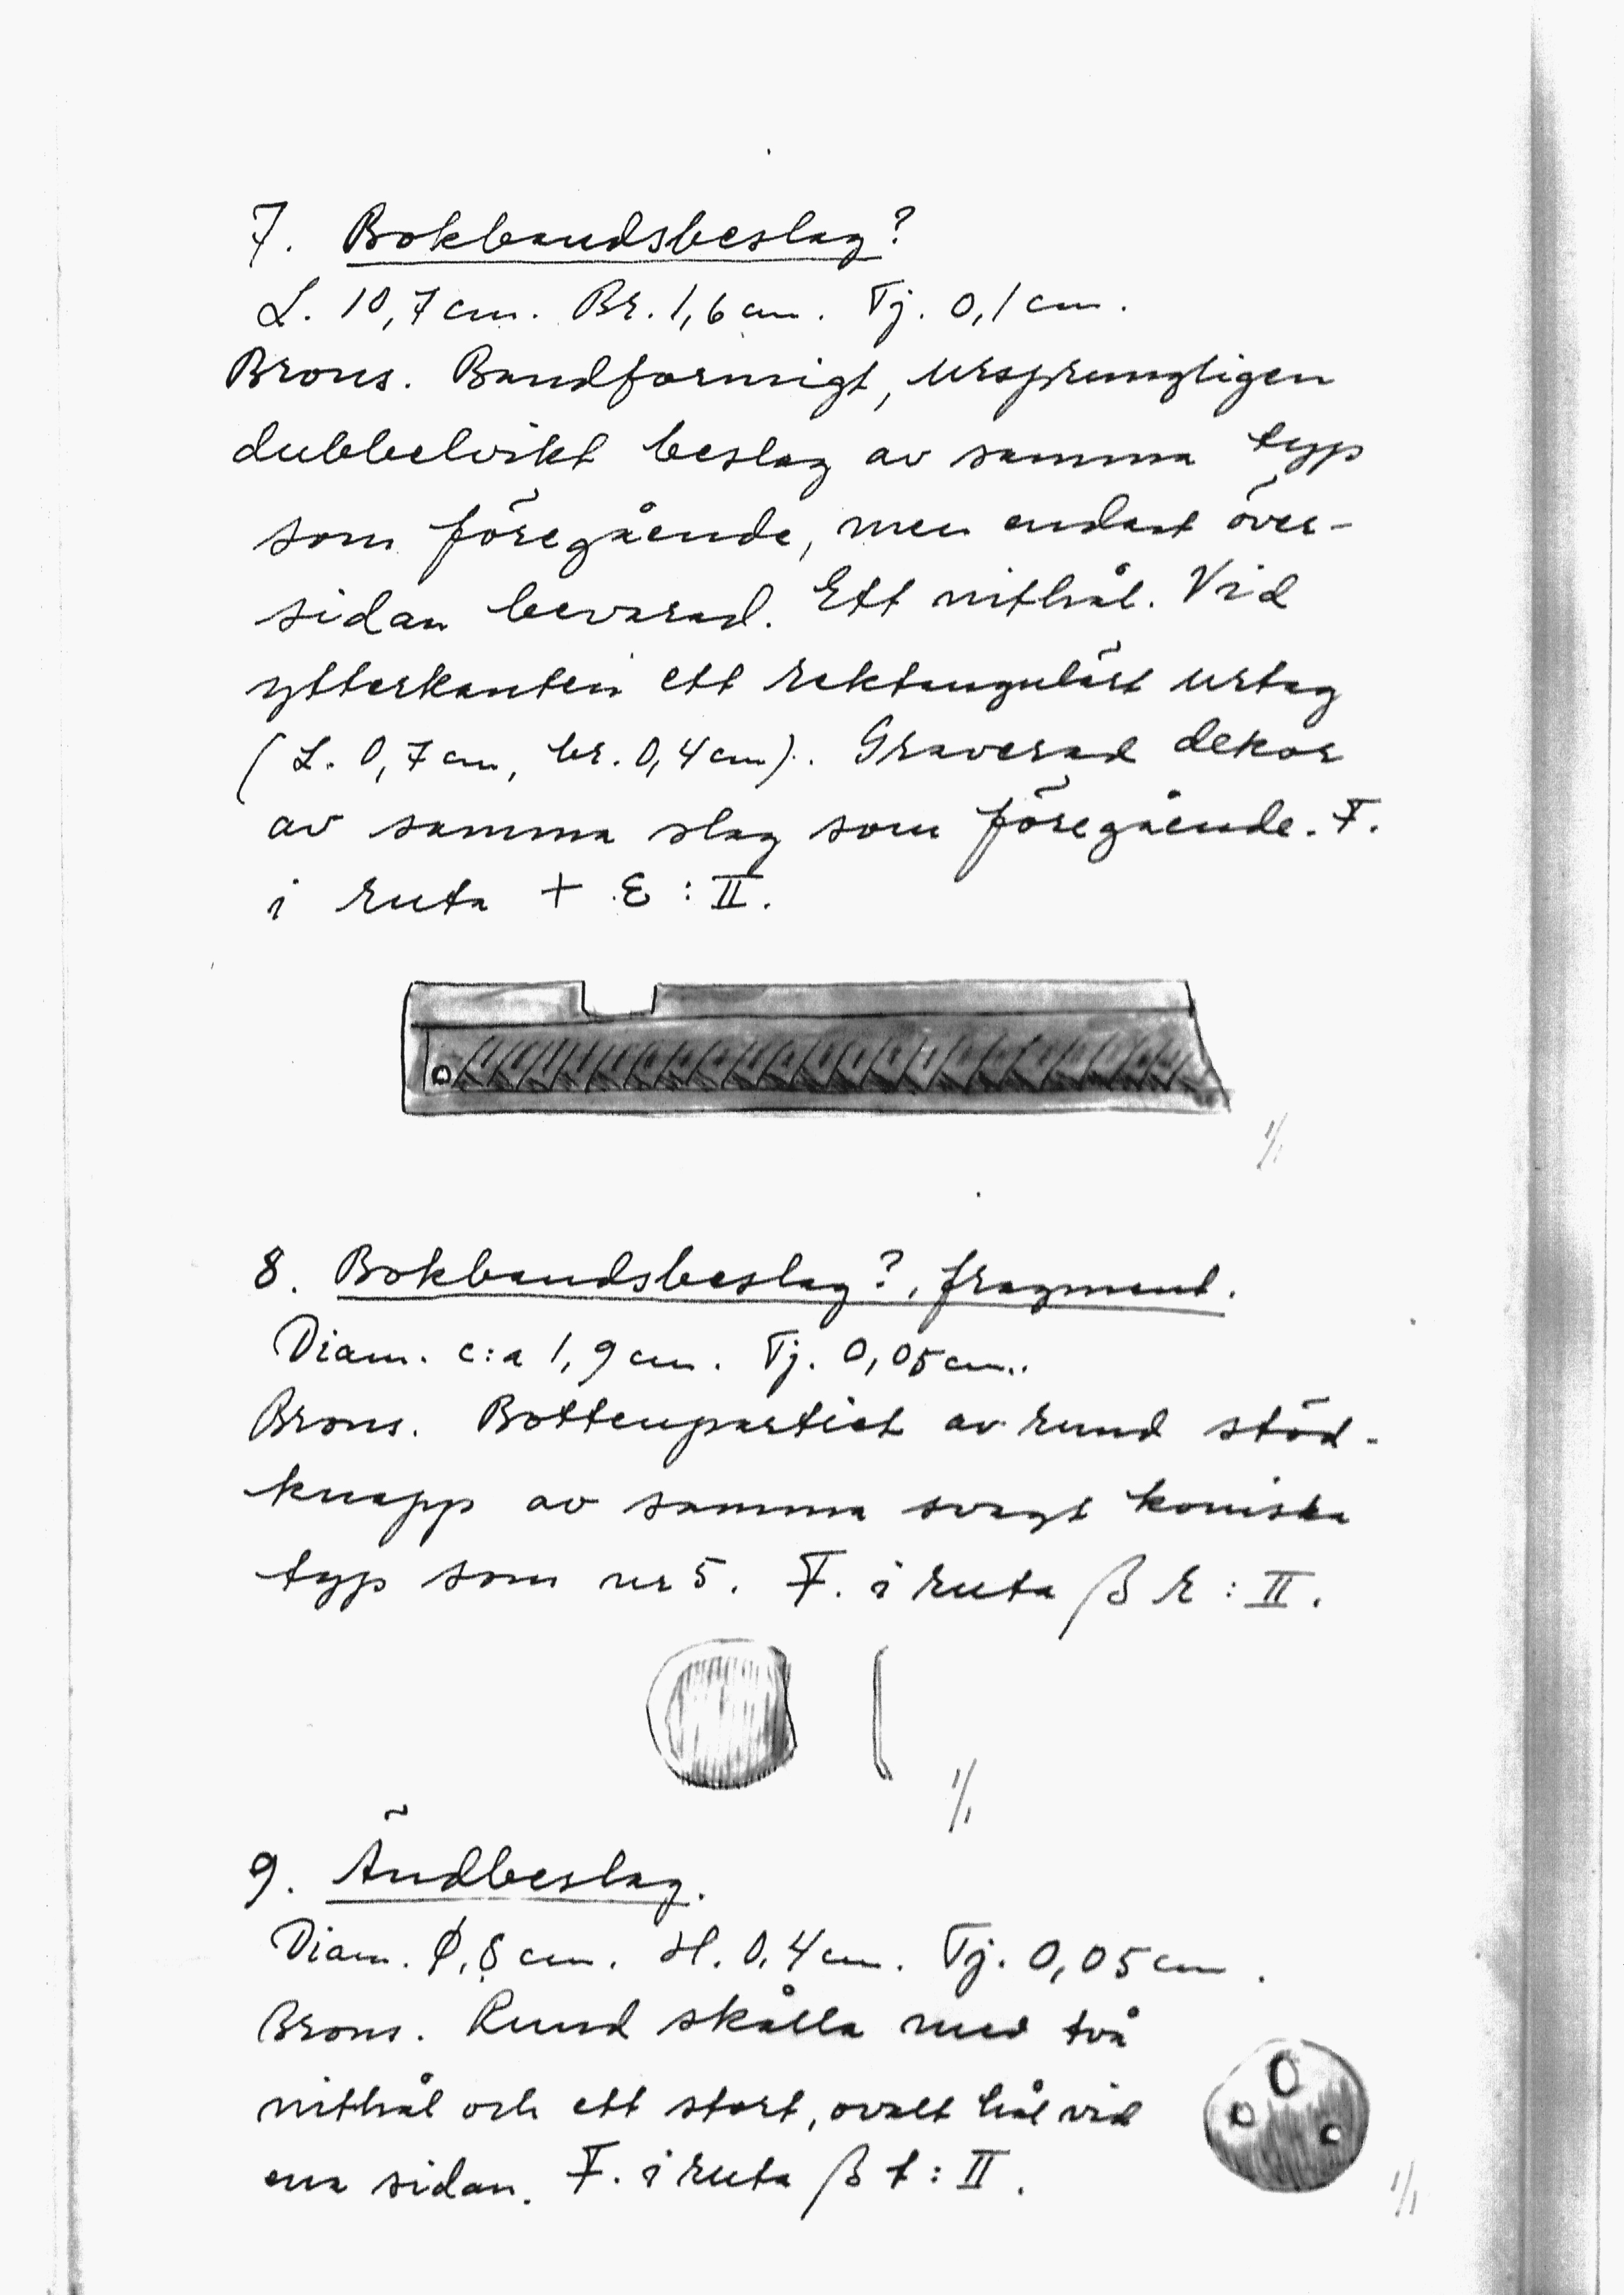 7. Bokbandsbeslag?
L. 10,7 cm. Br. 1,6 cm. Tj. 0,1 cm.
Brons. Bandformigt, ursprungligen
dubbelvikt beslag av samma typ
som föregående, men endast över-
sidan bevarad. Ett nithål. Vid
ytterkanten ett rektangulärt urtag
(L. 0,7 cm, br. 0,4 cm). Graverad dekor
av samma slag som föregående. F.
i ruta + E : II.
1/1
8. Bokbandsbeslag?, fragment.
Diam. c:a 1,9 cm. Tj. 0,05 cm.
Brons. Bottenpartiet av rund stöd-
knapp av samma svagt koniska
typ som nr 5. F. i ruta β E : II.
1/1
9. Ändbeslag.
Diam. , 8 cm. H. 0,4 cm. Tj. 0,05 cm.
Brons. Rund skålla med två
nithål och ett stort, ovalt hål vid
ena sidan. F. i ruta β t : II.
1/1